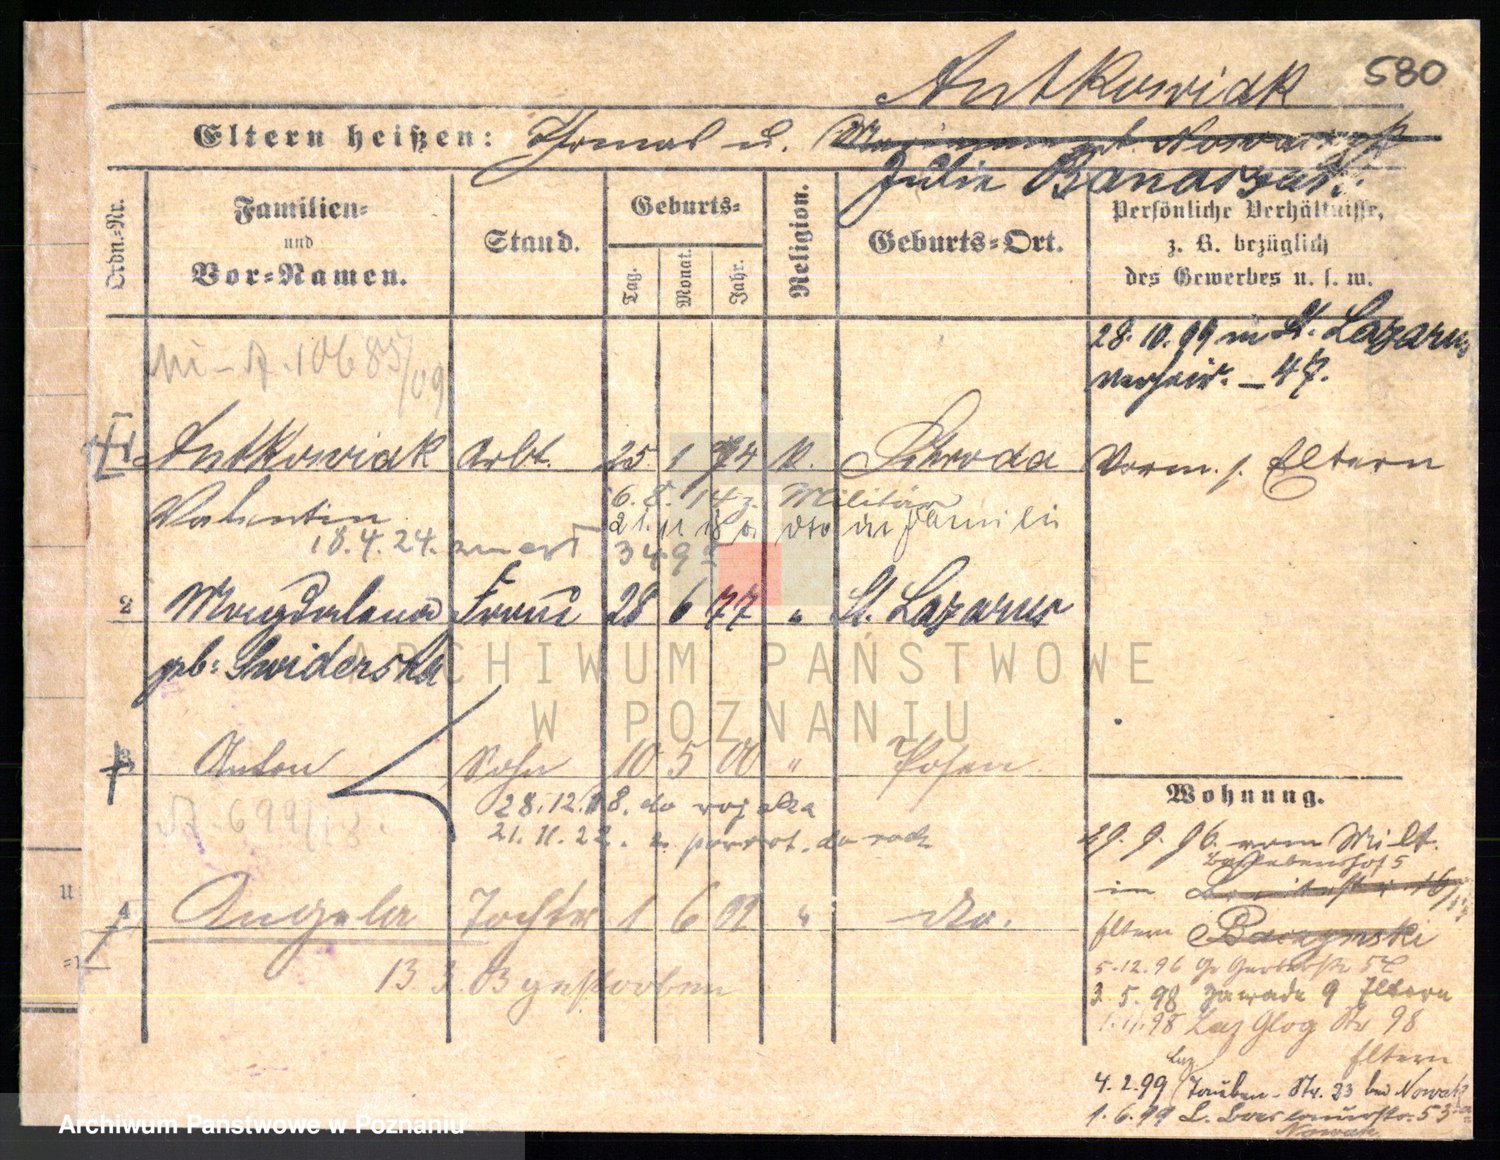 580
Antkowiak
Eltern heißen: Thomas u.
Julie Banaszak.
Ordn.-Nr.
Familien-
und
Vor-Namen.
Stand.
Geburts-
Tag.
Monat.
Jahr.
Religion.
Geburts-Ort.
Persönliche Verhältnisse,
z. B. bezüglich
des Gewerbes u. s. w.
28.10.99 in St. Lazarus
verheir. – 47.
A. 10685/09
1 Antkowiak Arbt. 25 1 74 k. Schroda Vorm. s. Eltern
Valentin 6. 8. 14 z. Militär
21. 11 18 dto der Familie
18.4.24.
2 Magdalena Frau 28 6 77 " St. Lazarus
geb: Swiderska
ARCHIWUM PAŃSTWOWE
W POZNANIU
3 Anton Sohn 10 5 00 " Posen
28.12.18. do wojska
A. 699/13. 21.11.22. z powrot. do
Wohnung.
29. 9. 96. vom Milt.
im
4 Angela Tochter 1 6 02 " do.
Eltern Baczynski
13 3 03 gestorben
5.12.96 Gr Gerberstr 54
3. 5. 98 Zawade 9 Eltern
1.11.98 Laz Glog Str 98
Eltern
Laz
4.2.99 Tauben-Str. 23 bei Nowak
1.6.99 L. 53
Nowak
u
=1
Archiwum Państwowe w Poznaniu